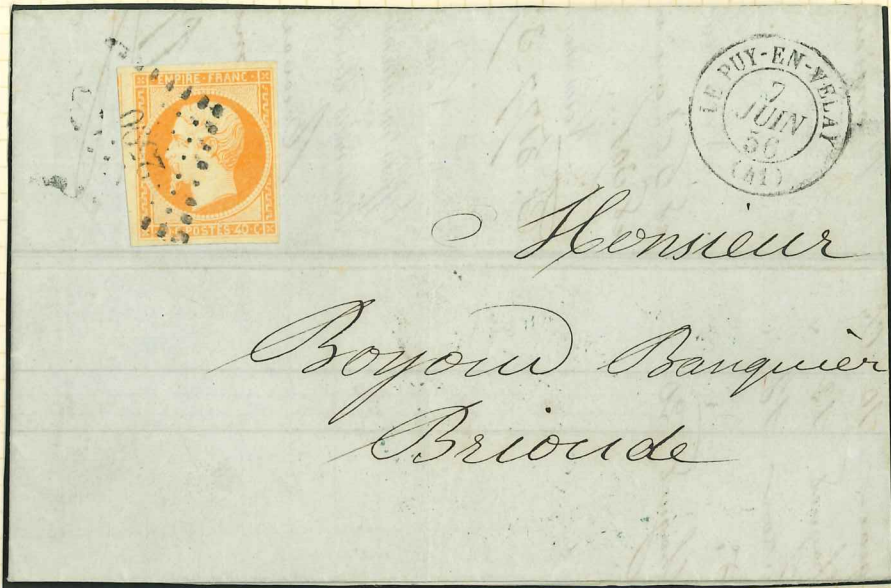 EMPIRE · FRANC ·
C · POSTES · 40 · C
LE PUY-EN-VELAY
7
JUIN
56
(41)
Monsieur
Boyoud Banquier
Brioude